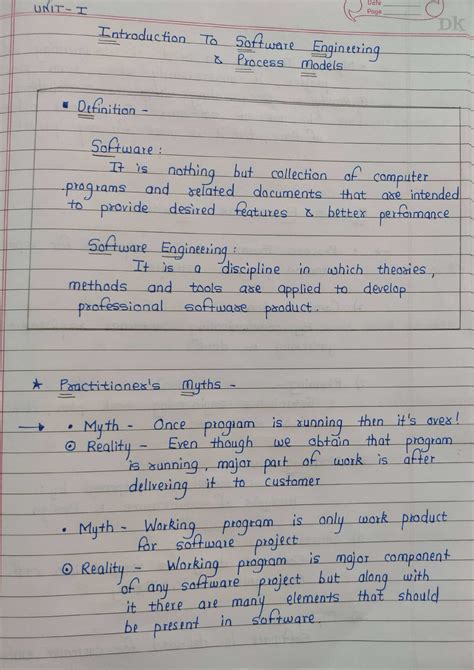 UNIT-I
Date
Page
DK
Introduction To Software Engineering
& Process Models
▪ Definition -
Software :
It is nothing but collection of computer
programs and related documents that are intended
to provide desired features & better perfomance
Software Engineering :
It is a discipline in which theories,
methods and tools are applied to develop
professional software product.
★ Practitioner's Myths -
→ • Myth - Once program is running then it's over!
⊙ Reality - Even though we obtain that program
is running, major part of work is after
delivering it to customer
• Myth - Working program is only work product
for software project
⊙ Reality - Working program is major component
of any software project but along with
it there are many elements that should
be present in software.